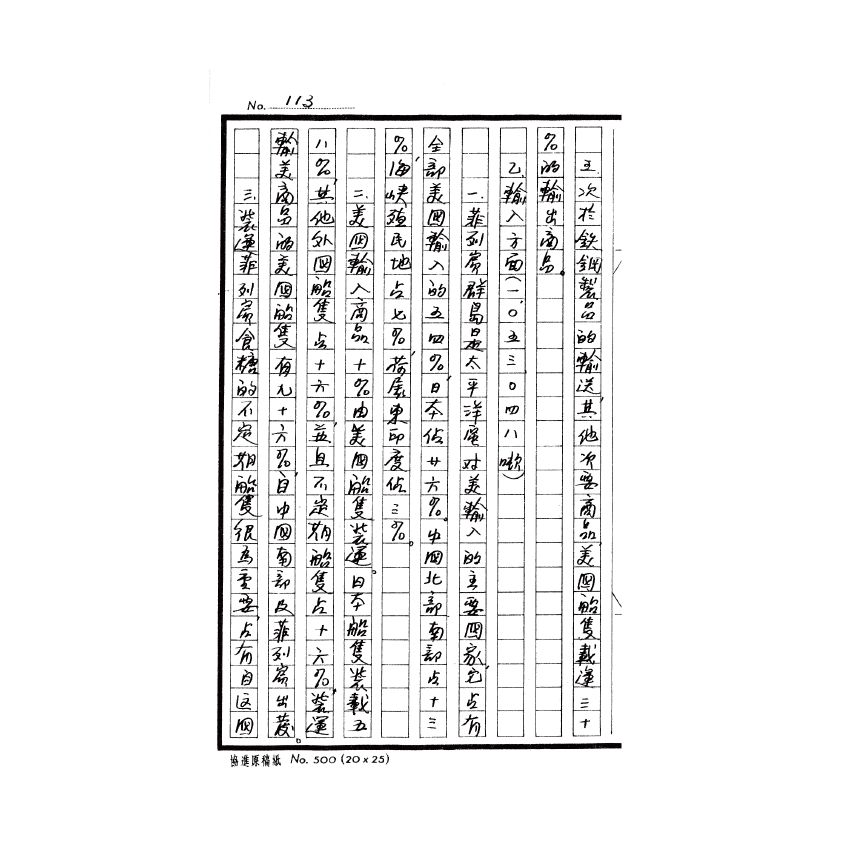 No. 113
五、次於鉄鋼製品的輸送,其他次要商品,美国船隻載運三十
%的輸出商品。
乙、輸入方面(一、〇五三〇四八噸)
一、菲列賓群島是太平洋區对美輸入的主要国家,它占有
全部美国輸入的五四%,日本佔廿六%。中国北部南部占十三
%,海峡殖民地占七%,荷屬東印度佔三%。
二、美国輸入商品十%由美国船隻装運。日本船隻装載五
八%,其他外国船隻占十六%,並且不定期船隻占十六%,装運
輸美商品的美国船隻有九十六%,自中国南部及菲列賓出發。
三、装運菲列賓食糖的不定期船隻很為重要,占有自这個
協進原稿紙 No. 500 (20 x 25)